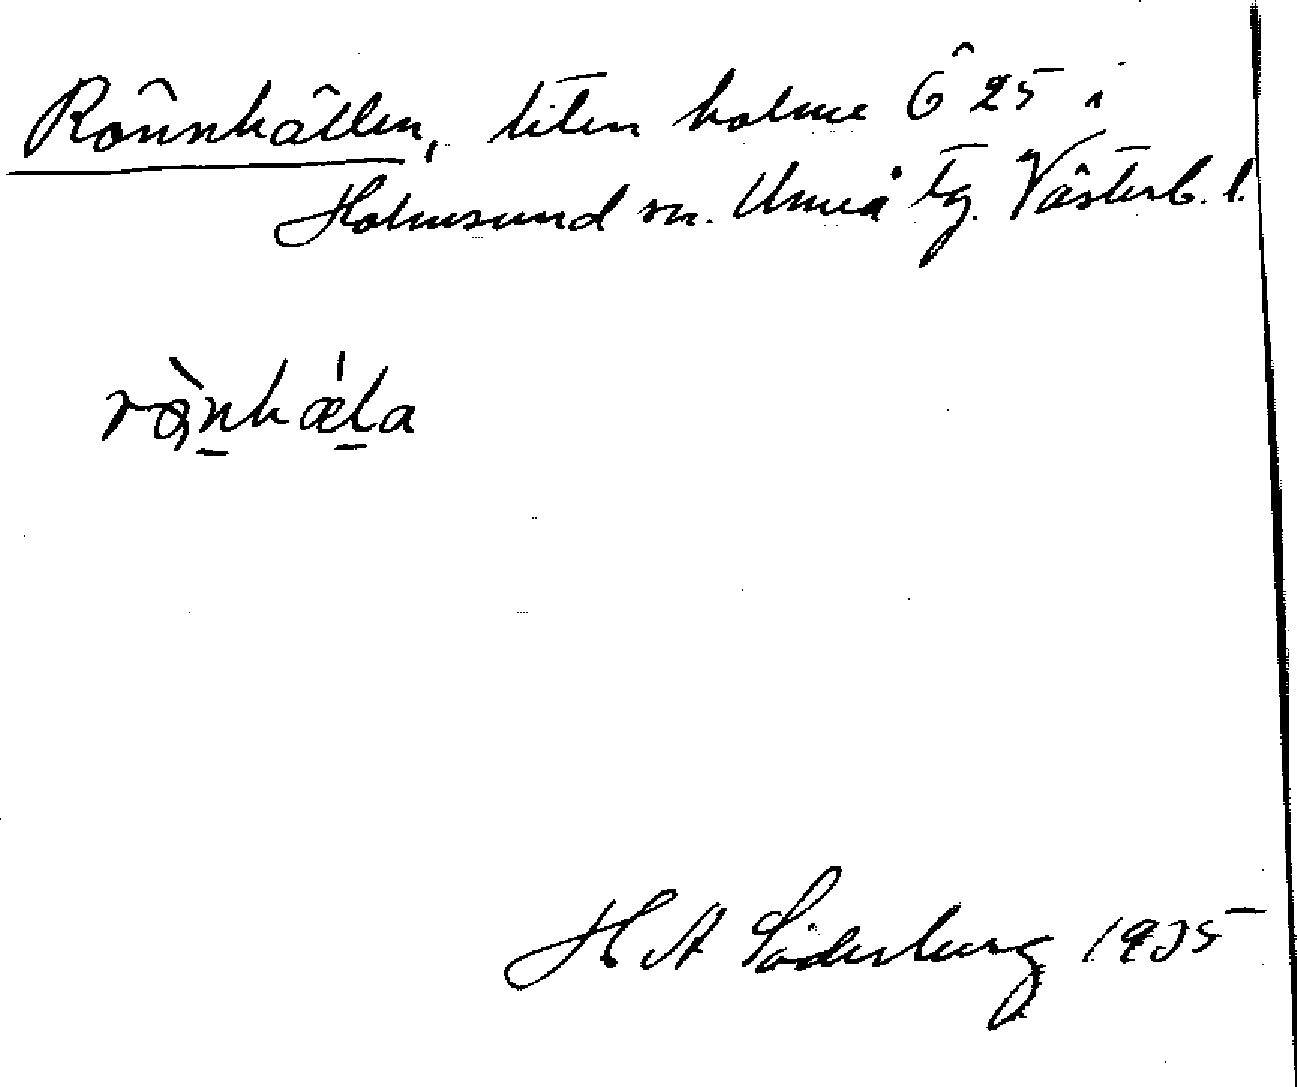 Rönnhällen, liten holme Ö 25 i
Holmsund sn. Umeå tg. Västerb. l.
H A Söderberg 1935